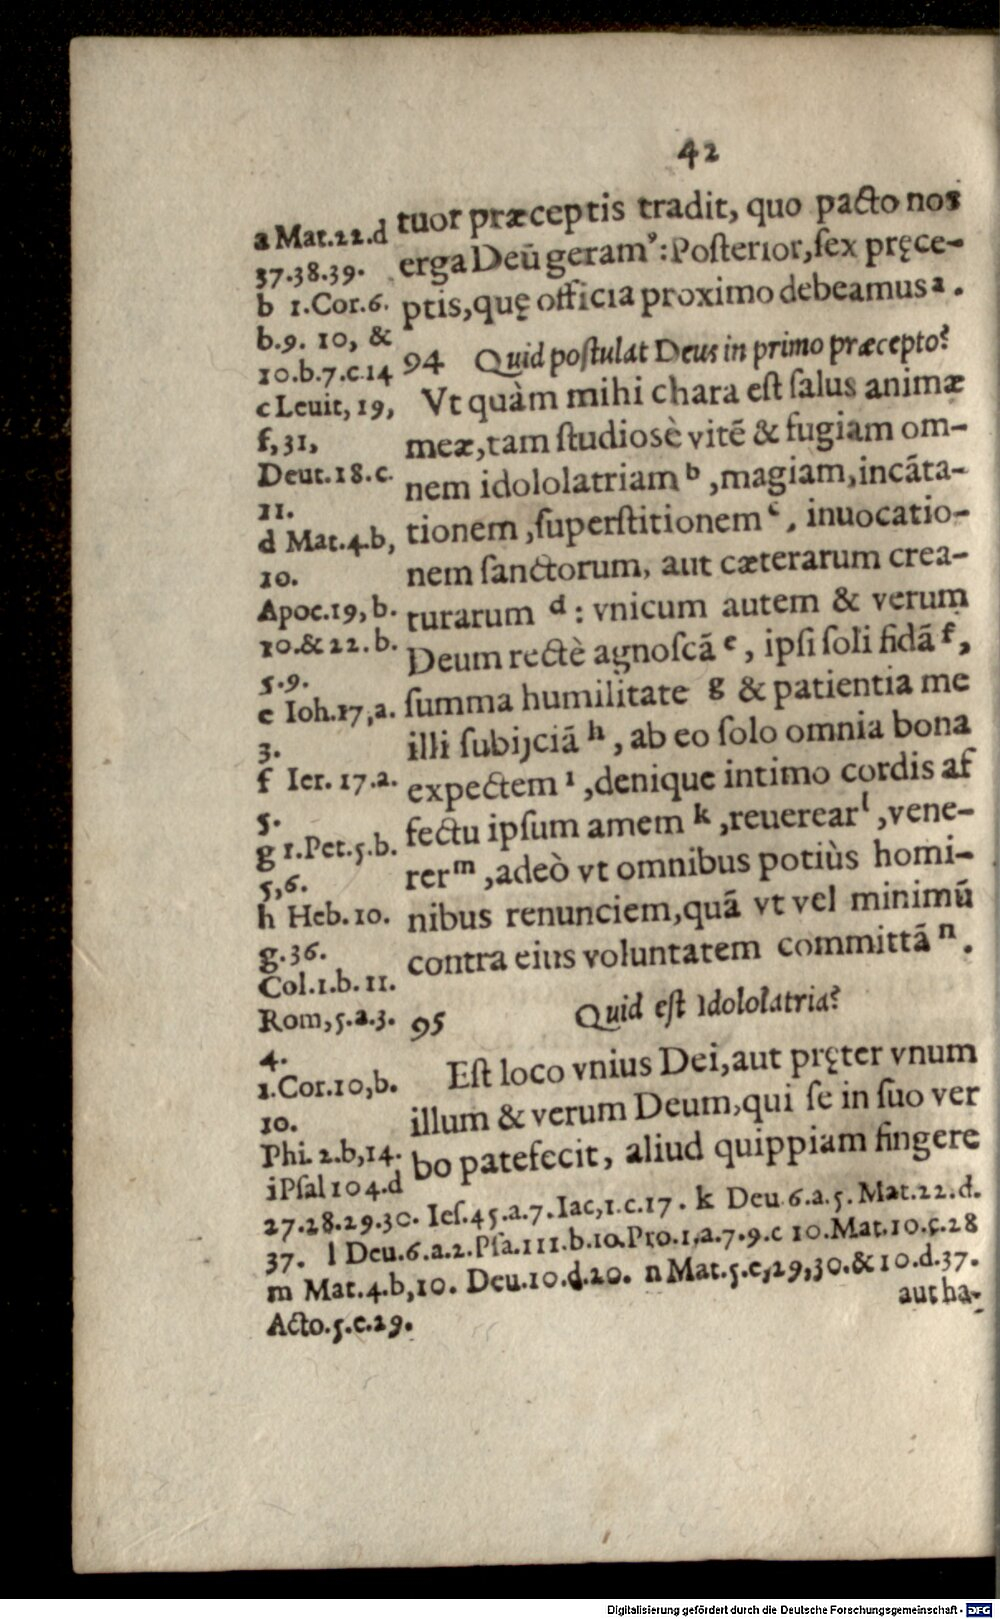 42
tuor præceptis tradit, quo pacto nos
erga Deū geram⁹: Posterior, sex pręce-
ptis, quę officia proximo debeamus ª.
94 Quid postulat Deus in primo præcepto?
Vt quàm mihi chara est salus animæ
meæ, tam studiosè vitē & fugiam om-
nem idololatriam ᵇ, magiam, incāta-
tionem, superstitionem ᶜ, inuocatio-
nem sanctorum, aut cæterarum crea-
turarum ᵈ: vnicum autem & verum
Deum rectè agnoscā ᵉ, ipsi soli fidā ᶠ,
summa humilitate g & patientia me
illi subijciā ʰ, ab eo solo omnia bona
expectem ¹, denique intimo cordis af
fectu ipsum amem ᵏ, reuerear ˡ, vene-
rer ᵐ, adeò vt omnibus potiùs homi-
nibus renunciem, quā vt vel minimū
contra eius voluntatem committā ⁿ.
95 Quid est Idololatria?
Est loco vnius Dei, aut pręter vnum
illum & verum Deum, qui se in suo ver
bo patefecit, aliud quippiam fingere
a Mat.22.d
37.38.39.
b 1.Cor.6.
b.9. 10, &
10.b.7.c.14
c Leuit, 19,
f, 31,
Deut.18.c.
11.
d Mat.4.b,
10.
Apoc.19, b.
10.&22.b.
5.9.
e Ioh.17,a.
3.
f Ier. 17.a.
5.
g 1.Pet.5.b.
5,6.
h Heb.10.
g.36.
Col.1.b.11.
Rom,5.a.3.
4.
1.Cor.10,b.
10.
Phi.2.b,14.
i Psal 104.d
27.28.29.30. Ies.45.a.7.Iac,1.c.17. k Deu.6.a.5. Mat.22.d.
37. l Deu.6.a.2.Psa.111.b.10.Pro.1,a.7.9.c 10.Mat.10.c.28
m Mat.4.b,10. Deu.10.d.20. n Mat.5.e,29,30.&10.d.37.
Acto.5.e.29.
aut ha-
Digitalisierung gefördert durch die Deutsche Forschungsgemeinschaft - DFG